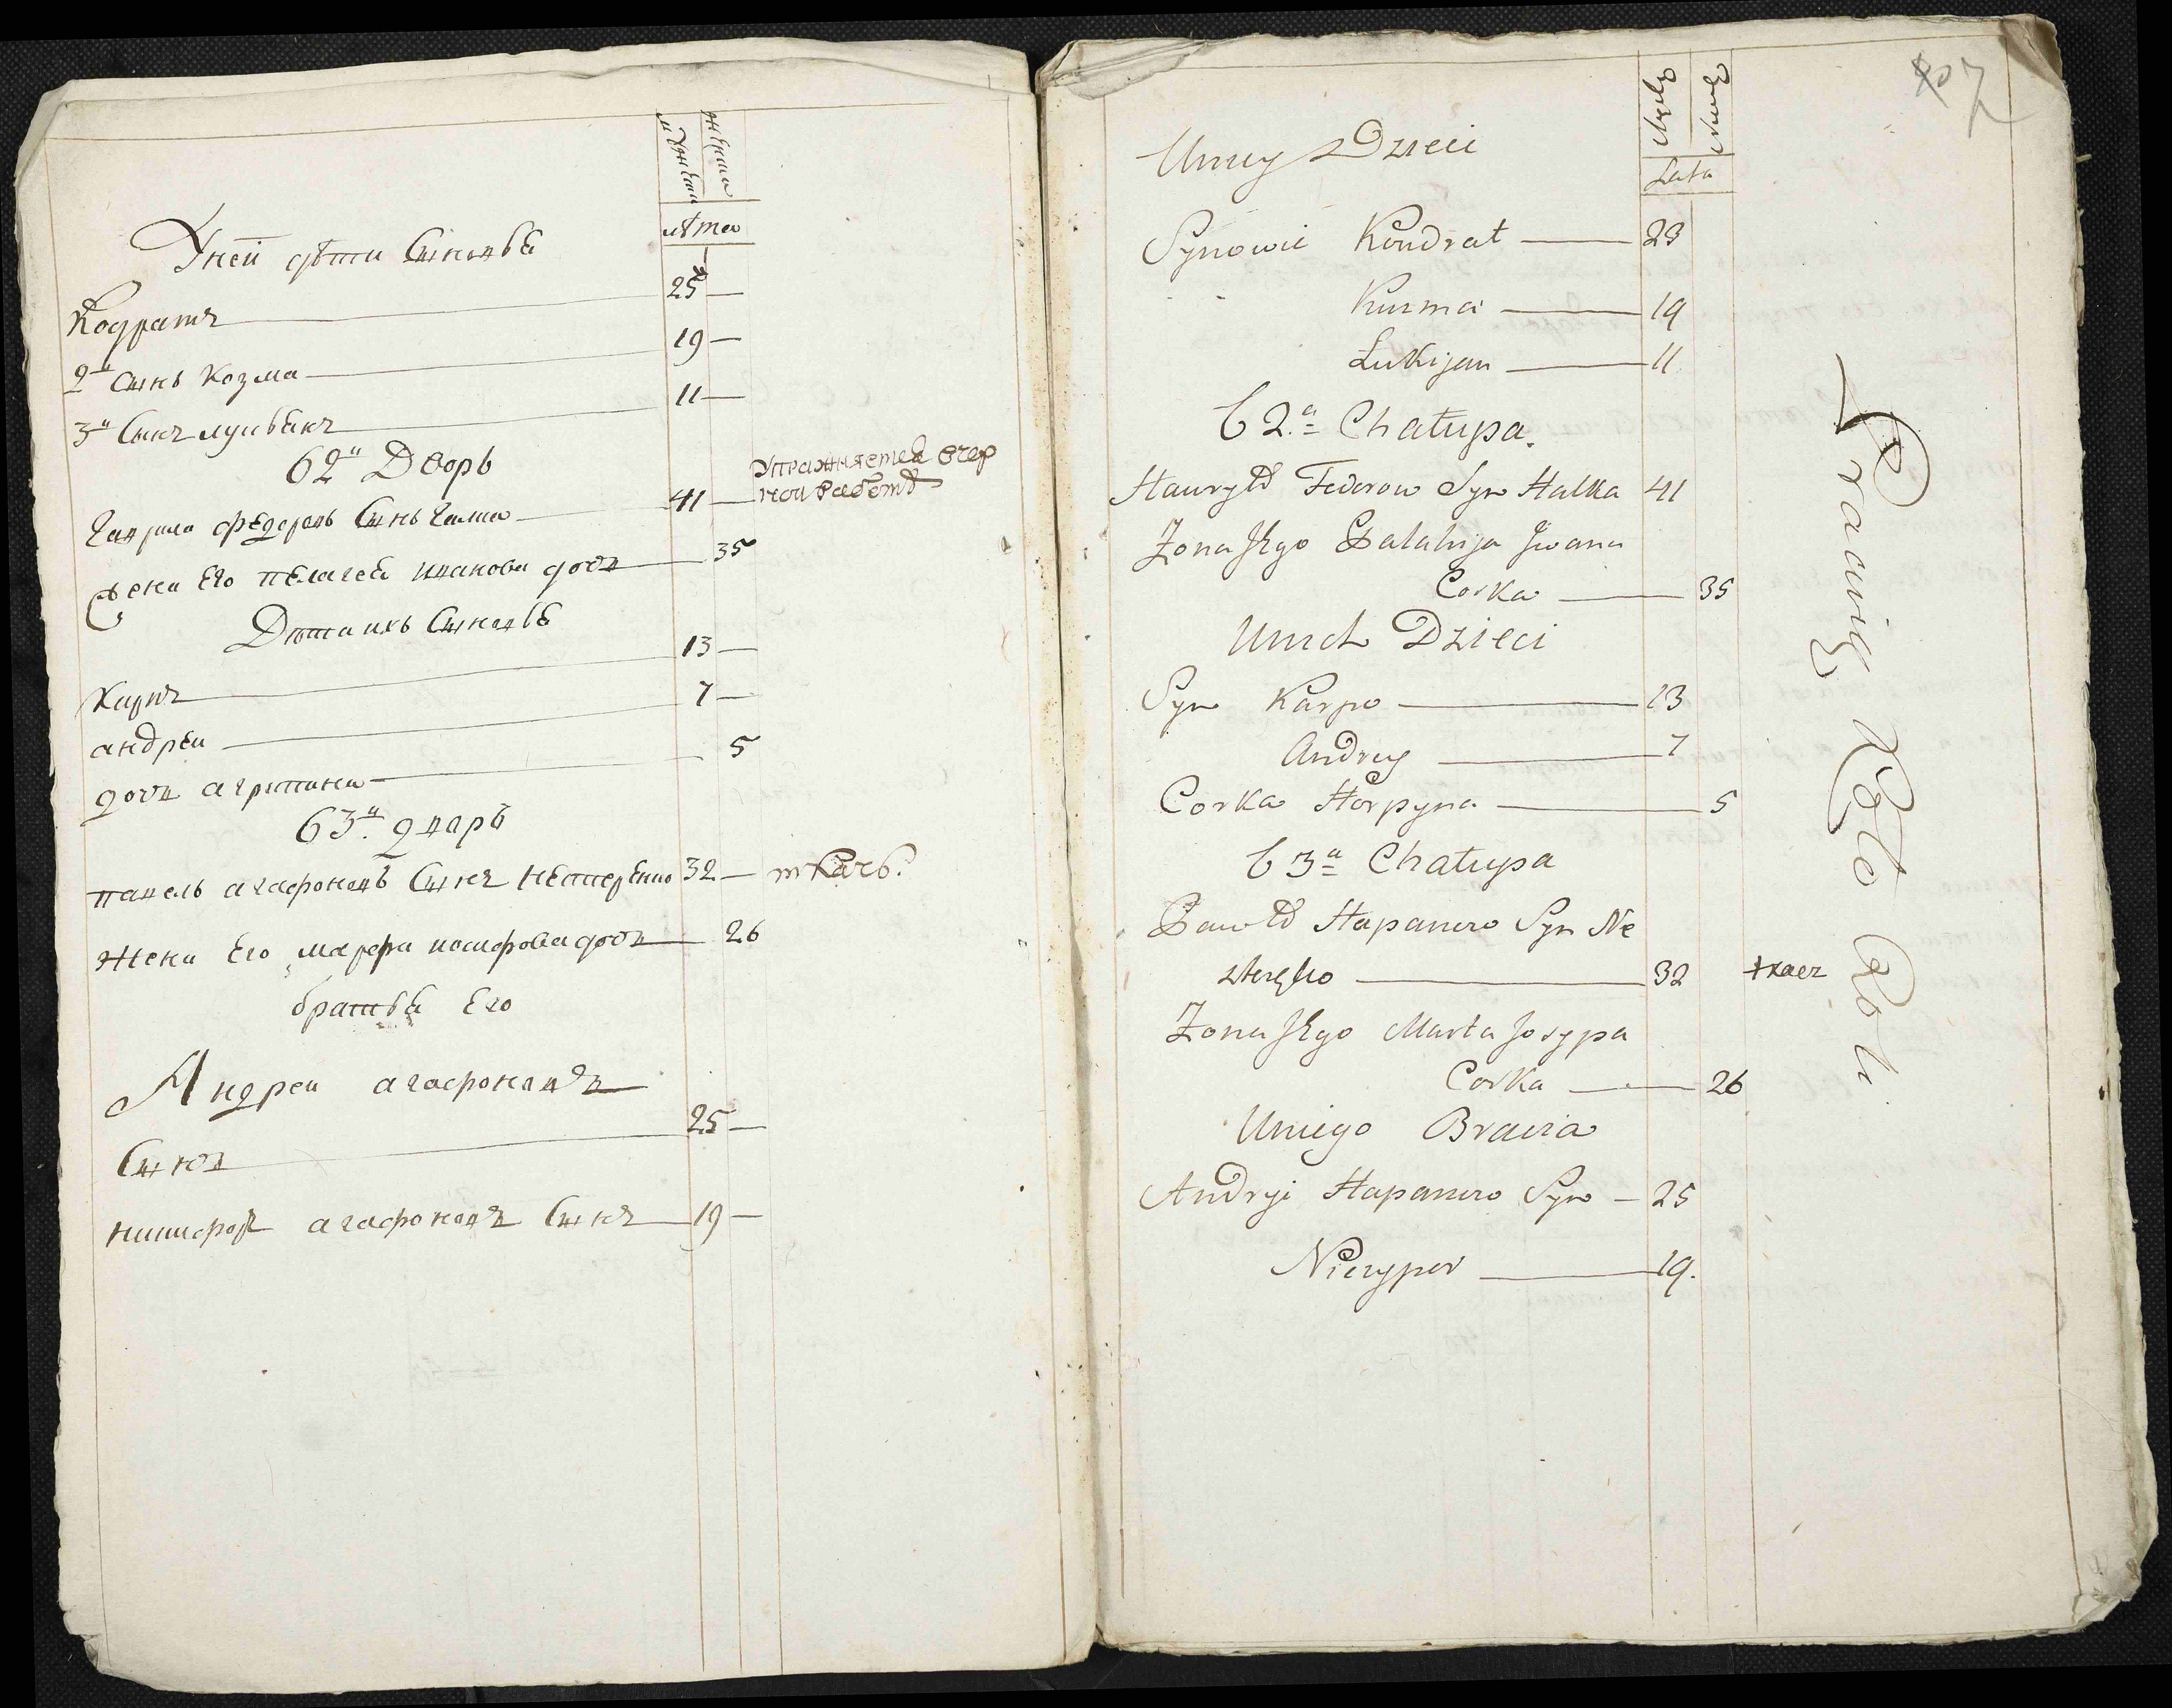 мужеска женска
лѣта
У ней дѣти Сыновья
Кодратъ 25
2й сынъ козма 19
3й Сынъ лукъянъ 11
62й Дворъ
гаврила федоровъ Сынъ галка 41 упражняется в чер
ной работѣ
жена Его пелагея иванова дочь 35
Дѣти ихъ Сыновья
карпъ 13
андреи 7
дочь агрипина 5
63й дворъ
павелъ агафоновъ Сынъ нестеренко 32 ткачъ.
жена Его марфа иосифова дочь 26
братья Его
Андреи агафоновъ
Сынъ 25
никифоръ агафоновъ Сынъ 19
7
Lata
Uniey Dzieci
Synowie Kondrat 23
Kuzma 19
Lukijan 11
62a Chatupa.
Hawryło Fedorow Syn Halka 41
Zona Jego Palahija Jwana
Corka 35
Unich Dzieci
Syn Karpo 13
Andrey 7
Corka Horpyna 5
63a Chatupa
Pawło Hapanowo Syn Ne
sterenko 32 tkacz
Zona Jego Marta Josypa
Corka 26
Uniego Bracia
Andryi Hapanowo Syn 25
Niczypor 19.
Pracuią Koło Roli